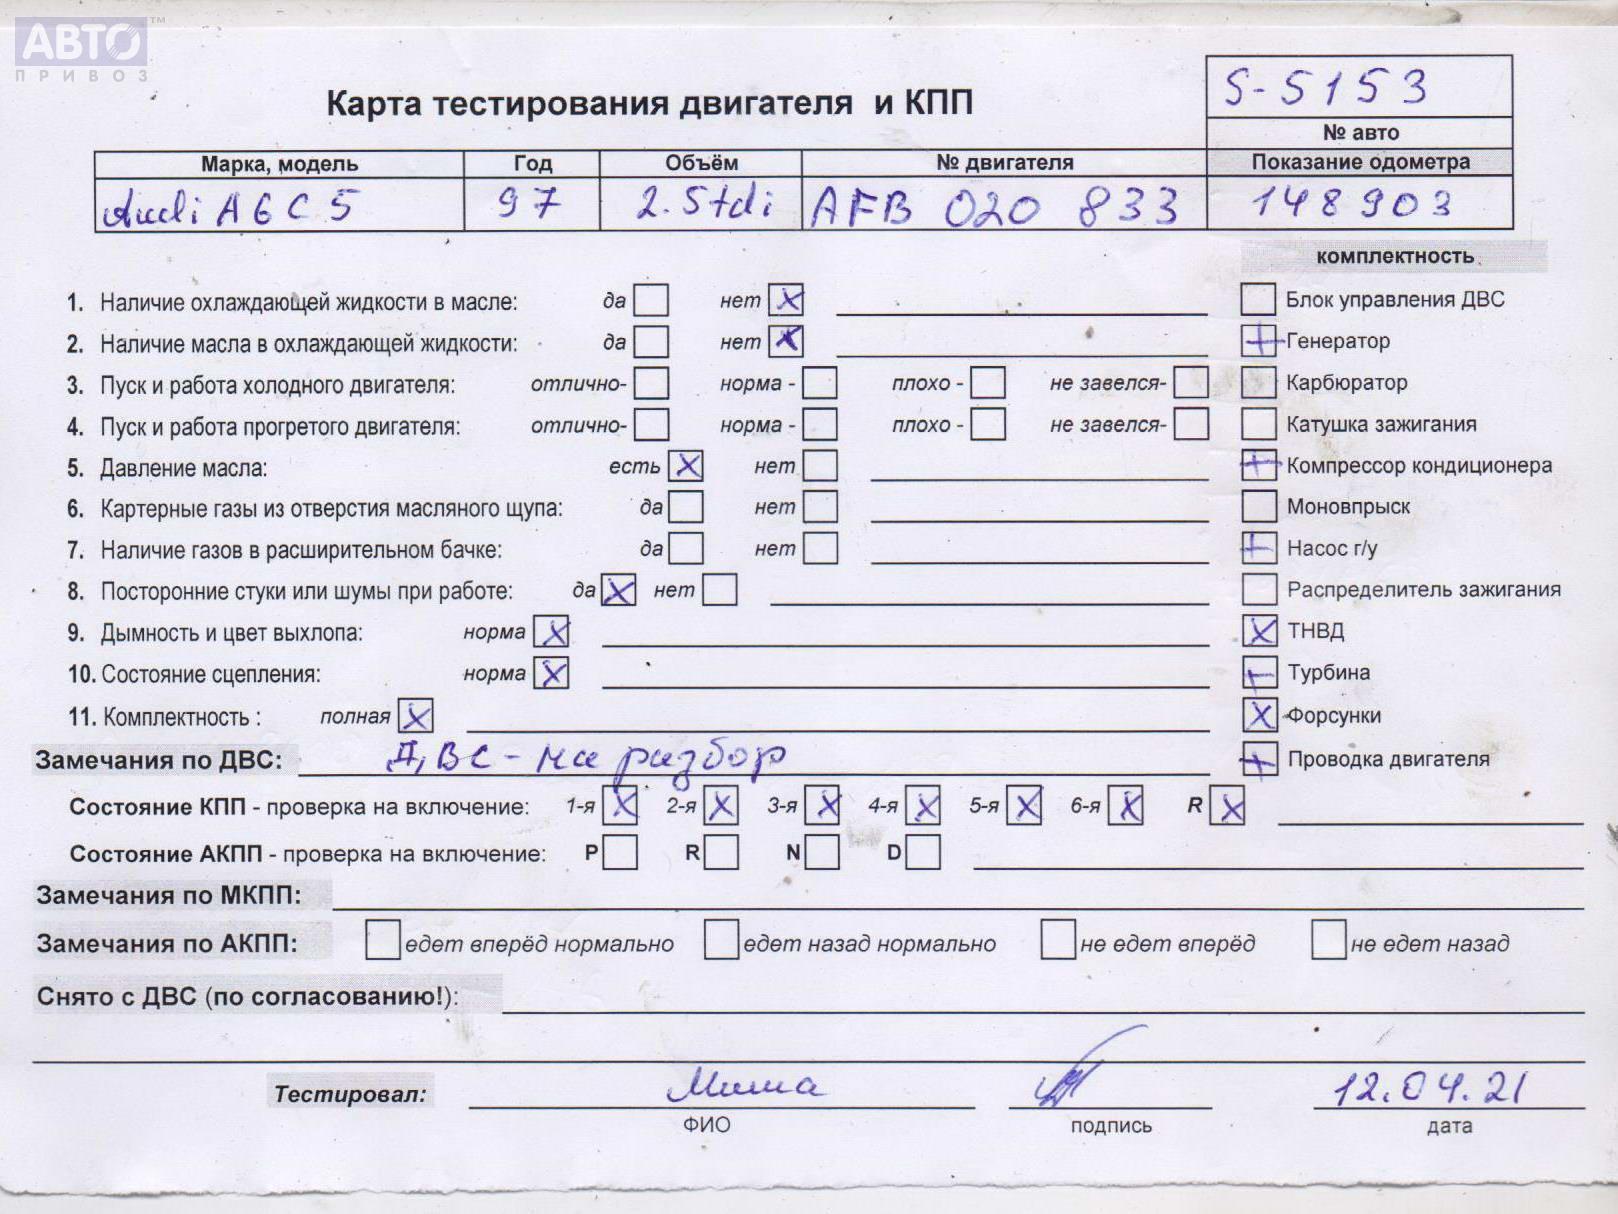 АВТО™
ПРИВОЗ
S-5153
Карта тестирования двигателя и КПП
№ авто
Марка, модель Год Объём № двигателя Показание одометра
Audi A6 C5 97 2.5tdi AFB 020 833 148903
комплектность
1. Наличие охлаждающей жидкости в масле: да нет X Блок управления ДВС
2. Наличие масла в охлаждающей жидкости: да нет X + Генератор
3. Пуск и работа холодного двигателя: отлично- норма - плохо - не завелся- Карбюратор
4. Пуск и работа прогретого двигателя: отлично- норма - плохо - не завелся- Катушка зажигания
5. Давление масла: есть X нет + Компрессор кондиционера
6. Картерные газы из отверстия масляного щупа: да нет Моновпрыск
7. Наличие газов в расширительном бачке: да нет + Насос г/у
8. Посторонние стуки или шумы при работе: да X нет Распределитель зажигания
9. Дымность и цвет выхлопа: норма X X ТНВД
10. Состояние сцепления: норма X + Турбина
11. Комплектность : полная X X Форсунки
Замечания по ДВС: ДВС - на разбор + Проводка двигателя
Состояние КПП - проверка на включение: 1-я X 2-я X 3-я X 4-я X 5-я X 6-я X R X
Состояние АКПП - проверка на включение: P R N D
Замечания по МКПП:
Замечания по АКПП: едет вперёд нормально едет назад нормально не едет вперёд не едет назад
Снято с ДВС (по согласованию!):
Тестировал: Миша 12.04.21
ФИО подпись дата